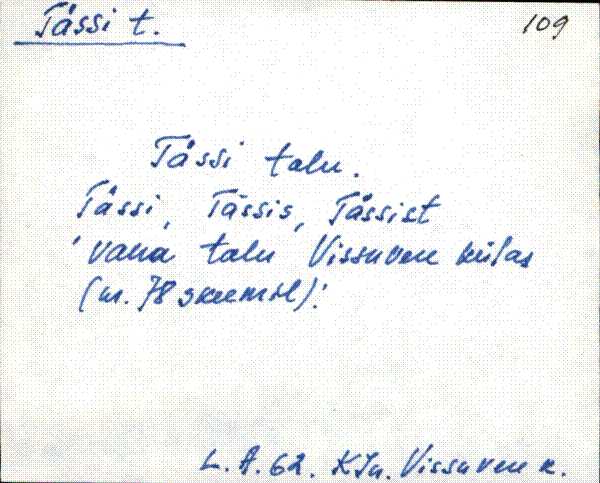 Tässi t.
109
Tässi talu.
Tässi, Tässis, Tässist
'vana talu Vissuvere külas
(nr. 78 skeemil)'.
L. A. 62. KJn. Vissuvere k.